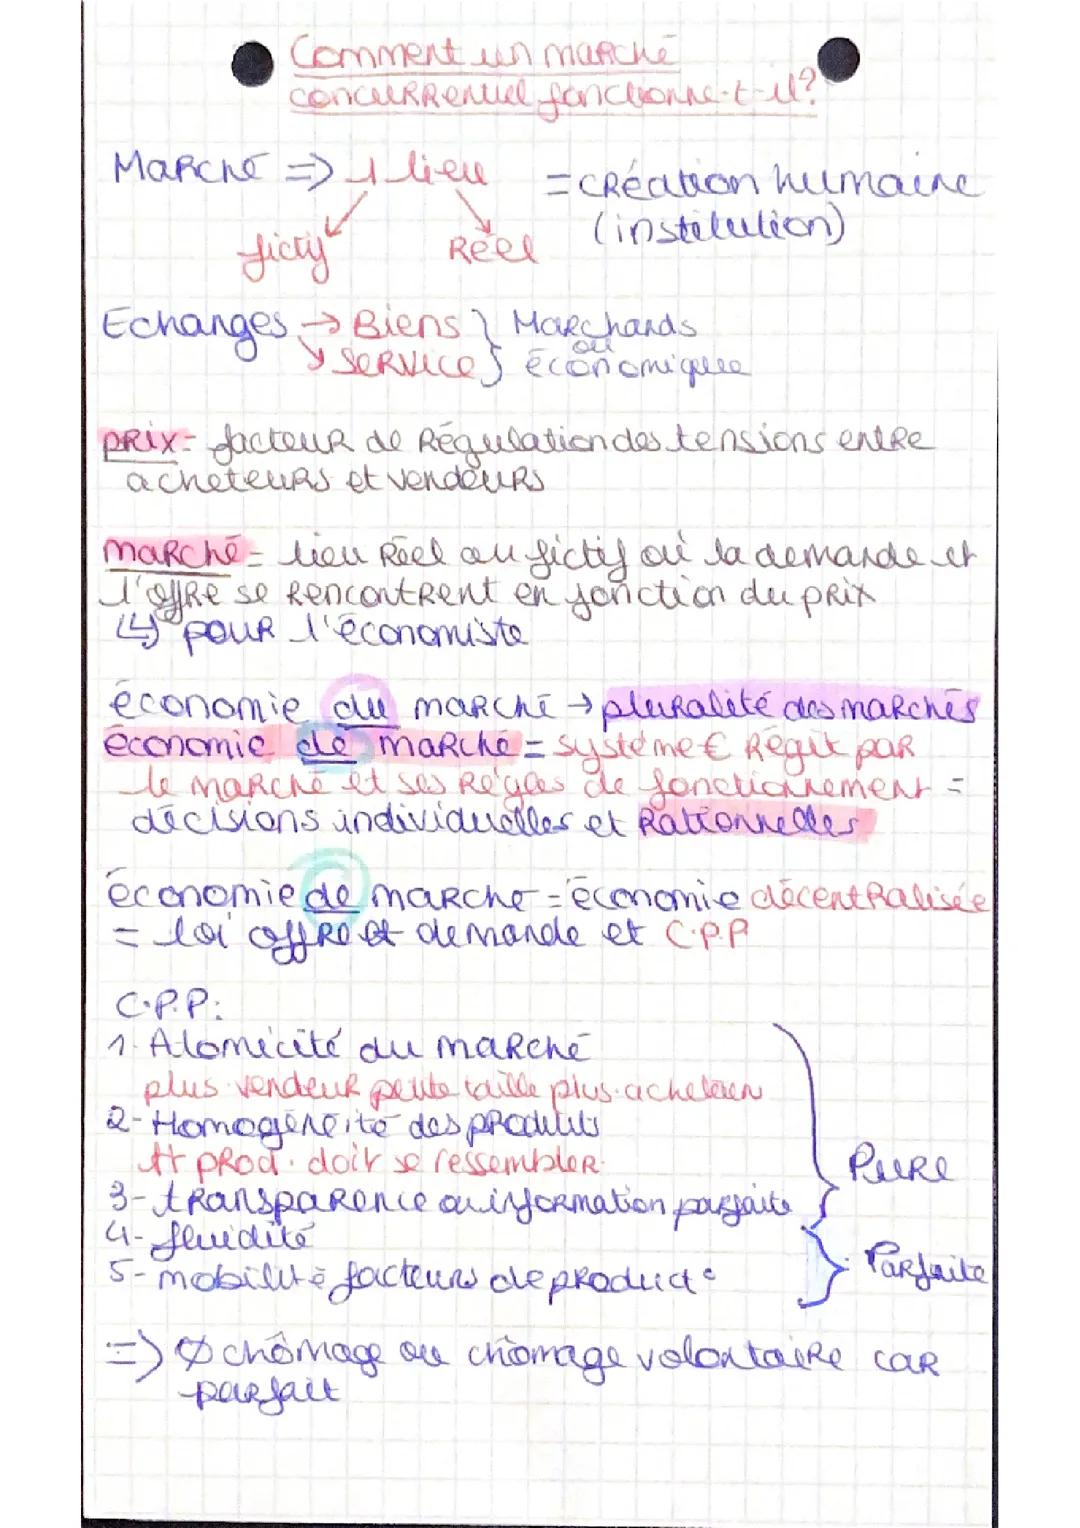 Comment un marché
concurrentiel fonctionne-t-il?
Marché => 1 lieu = création humaine
(institution)
fictif Réel
Echanges → Biens } Marchands
ou
↘ service } économique
prix = facteur de Régulation des tensions entre
acheteurs et vendeurs
marché = lieu Réel ou fictif où la demande et
l'offre se rencontrent en fonction du prix
↳ pour l'économiste
économie du marché → pluralité des marchés
économie de marché = système € Régit par
le marché et ses Règles de fonctionnement =
décisions individuelles et Rationnelles
économie de marché = économie décentralisée
= loi offre et demande et C.P.P
C.P.P:
1- Atomicité du marché
plus vendeur petite taille plus acheteur
2- Homogénéité des produits
tt prod. doit se ressembler.
3- transparence ou information parfaite
Pure
4- fluidité
5- mobilité facteurs de product°
Parfaite
=> Ø chômage ou chômage volontaire car
parfait